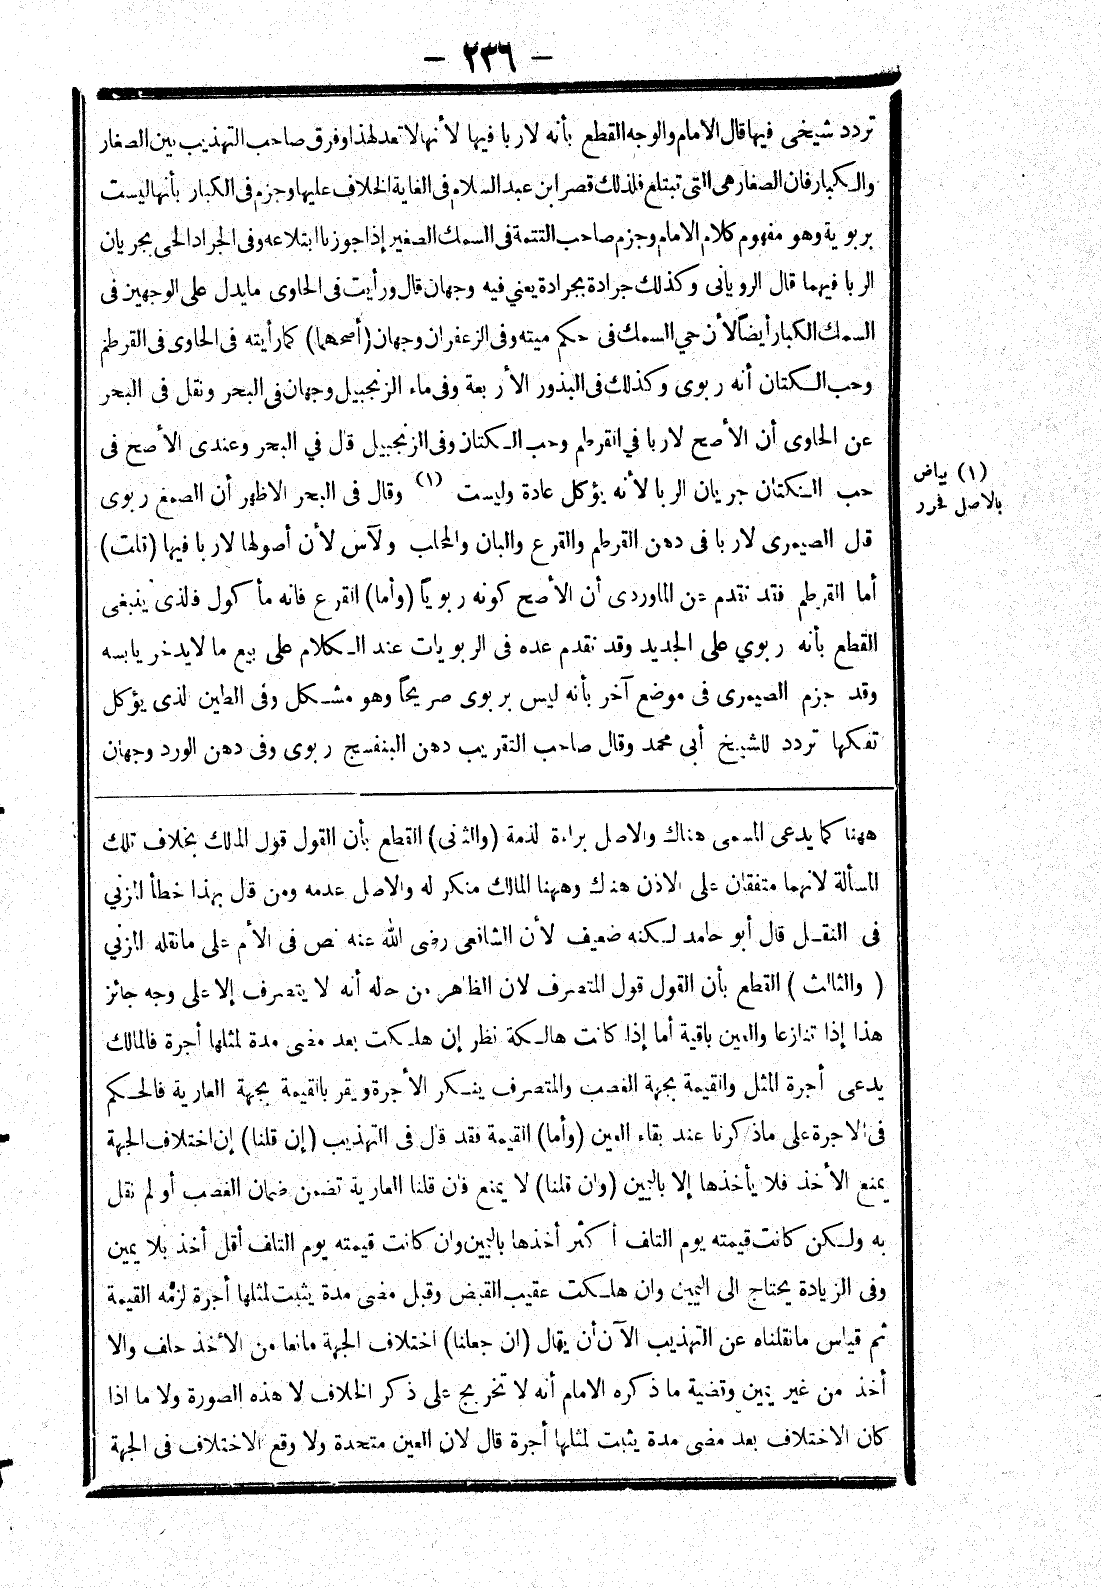 — ٢٣٦ —
تردد شيخى فيها قال الامام والوجه القطع بأنه لا ربا فيها لأنها لا تعد لهذا وفرق صاحب التهذيب بين الصغار
والكبار فان الصغار هى التى تبتلع فلذلك قصر ابن عبد السلام فى الغاية الخلاف عليها وجزم فى الكبار بأنها ليست
بربوية وهو مفهوم كلام الامام وجزم صاحب التتمة فى السمك الصغير إذا جوزنا ابتلاعه وفى الجراد الحى بجريان
الربا فيهما قال الرويانى وكذلك جرادة بجرادة يعني فيه وجهان قال ورأيت فى الحاوى ما يدل على الوجهين فى
السمك الكبار أيضاً لأن حي السمك فى حكم ميته وفى الزعفران وجهان (أصحهما) كما رأيته فى الحاوى فى القرطم
وحب الكتان أنه ربوى وكذلك فى البذور الأربعة وفى ماء الزنجبيل وجهان فى البحر ونقل فى البحر
عن الحاوى أن الأصح لا ربا في القرطم وحب الكتان وفى الزنجبيل قال في البحر وعندى الأصح فى
حب الكتان جريان الربا لأنه يؤكل عادة وليست (١) وقال فى البحر الاظهر أن الصمغ ربوى
قال الصيمرى لا ربا فى دهن القرطم والقرع والبان والمحلب ولآس لأن أصولها لا ربا فيها (قلت)
أما القرطم فقد تقدم عن الماوردى أن الأصح كونه ربوياً (وأما) القرع فانه مأكول فالذى ينبغى
القطع بأنه ربوي على الجديد وقد تقدم عده فى الربويات عند الكلام على بيع ما لا يدخر يابسه
وقد جزم الصيمرى فى موضع آخر بأنه ليس بربوى صريحاً وهو مشكل وفى الطين لذى يؤكل
تفكها تردد للشيخ أبى محمد وقال صاحب التقريب دهن البنفسج ربوى وفى دهن الورد وجهان
(١) بياض
بالاصل فحرر
ههنا كما يدعى المسمى هناك والاصل براءة لذمة (والثانى) القطع بأن القول قول المالك بخلاف تلك
المسألة لانهما متفقان على الاذن هناك وههنا المالك منكر له والاصل عدمه ومن قال بهذا خطأ المزني
فى النقل قال أبو حامد لكنه ضعيف لأن الشافعى رضى الله عنه نص فى الأم على ما نقله المزني
(والثالث) القطع بأن القول قول المتصرف لان الظاهر من حاله أنه لا يتصرف إلا على وجه جائز
هذا إذا تنازعا والعين باقية أما إذا كانت هالكة نظر إن هلكت بعد مضى مدة لمثلها أجرة فالمالك
يدعى أجرة المثل والقيمة بجهة الغصب والمتصرف ينكر الأجرة ويقر بالقيمة بجهة العارية فالحكم
فى الاجرة على ما ذكرنا عند بقاء العين (وأما) القيمة فقد قال فى التهذيب (إن قلنا) إن اختلاف الجهة
يمنع الأخذ فلا يأخذها إلا باليمين (وان قلنا) لا يمنع فان قلنا العارية تضمن ضمان الغصب أو لم نقل
به ولكن كانت قيمته يوم التلف أكثر أخذها باليمين وان كانت قيمته يوم التلف أقل أخذ بلا يمين
وفى الزيادة يحتاج الى اليمين وان هلكت عقيب القبض وقبل مضى مدة يثبت لمثلها أجرة لزمه القيمة
ثم قياس ما نقلناه عن التهذيب الآن أن يقال (ان جعلنا) اختلاف الجهة مانعا من الأخذ حلف والا
أخذ من غير يمين وقضية ما ذكره الامام أنه لا تخريج على ذكر الخلاف لا هذه الصورة ولا ما اذا
كان الاختلاف بعد مضى مدة يثبت لمثلها أجرة قال لان العين متحدة ولا وقع الاختلاف فى الجهة